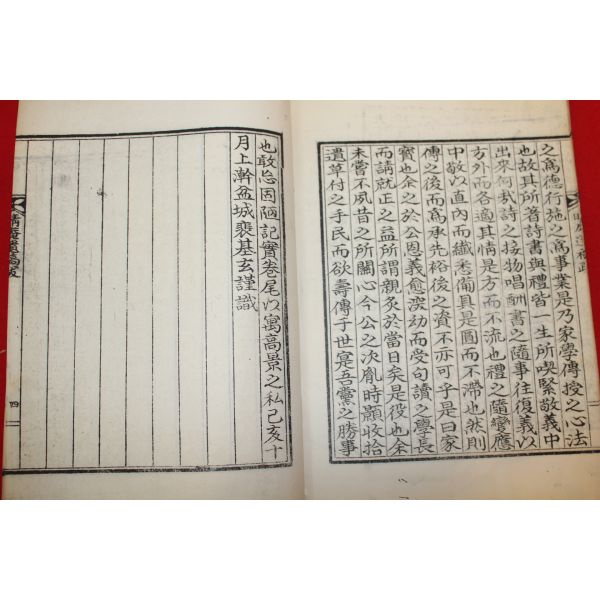 之爲德行地之爲事業是乃家學傳授之心法
也故其所著詩書與禮皆一生所喫緊敬義中
出來何哉詩之接物唱酬書之隨事往復義以
方外而各適其情是方而不流也禮之隨變應
中敬以直內而纖悉備具是圓而不滯也然則
傳之後而爲承先裕後之資不亦可乎是曰家
寶也余之於公恩義愈深幼而受句讀之學長
而請就正之益所謂親炙於當日矣是役也余
未嘗不夙昔之所關心今公之次胤時顯收拾
遺草付之手民而欲壽傳于世寔吾黨之勝事
也敢忘固陋記實卷尾以寓高景之私己亥十
月上澣盆城裵基玄謹識
晴菴遺稿跋
四